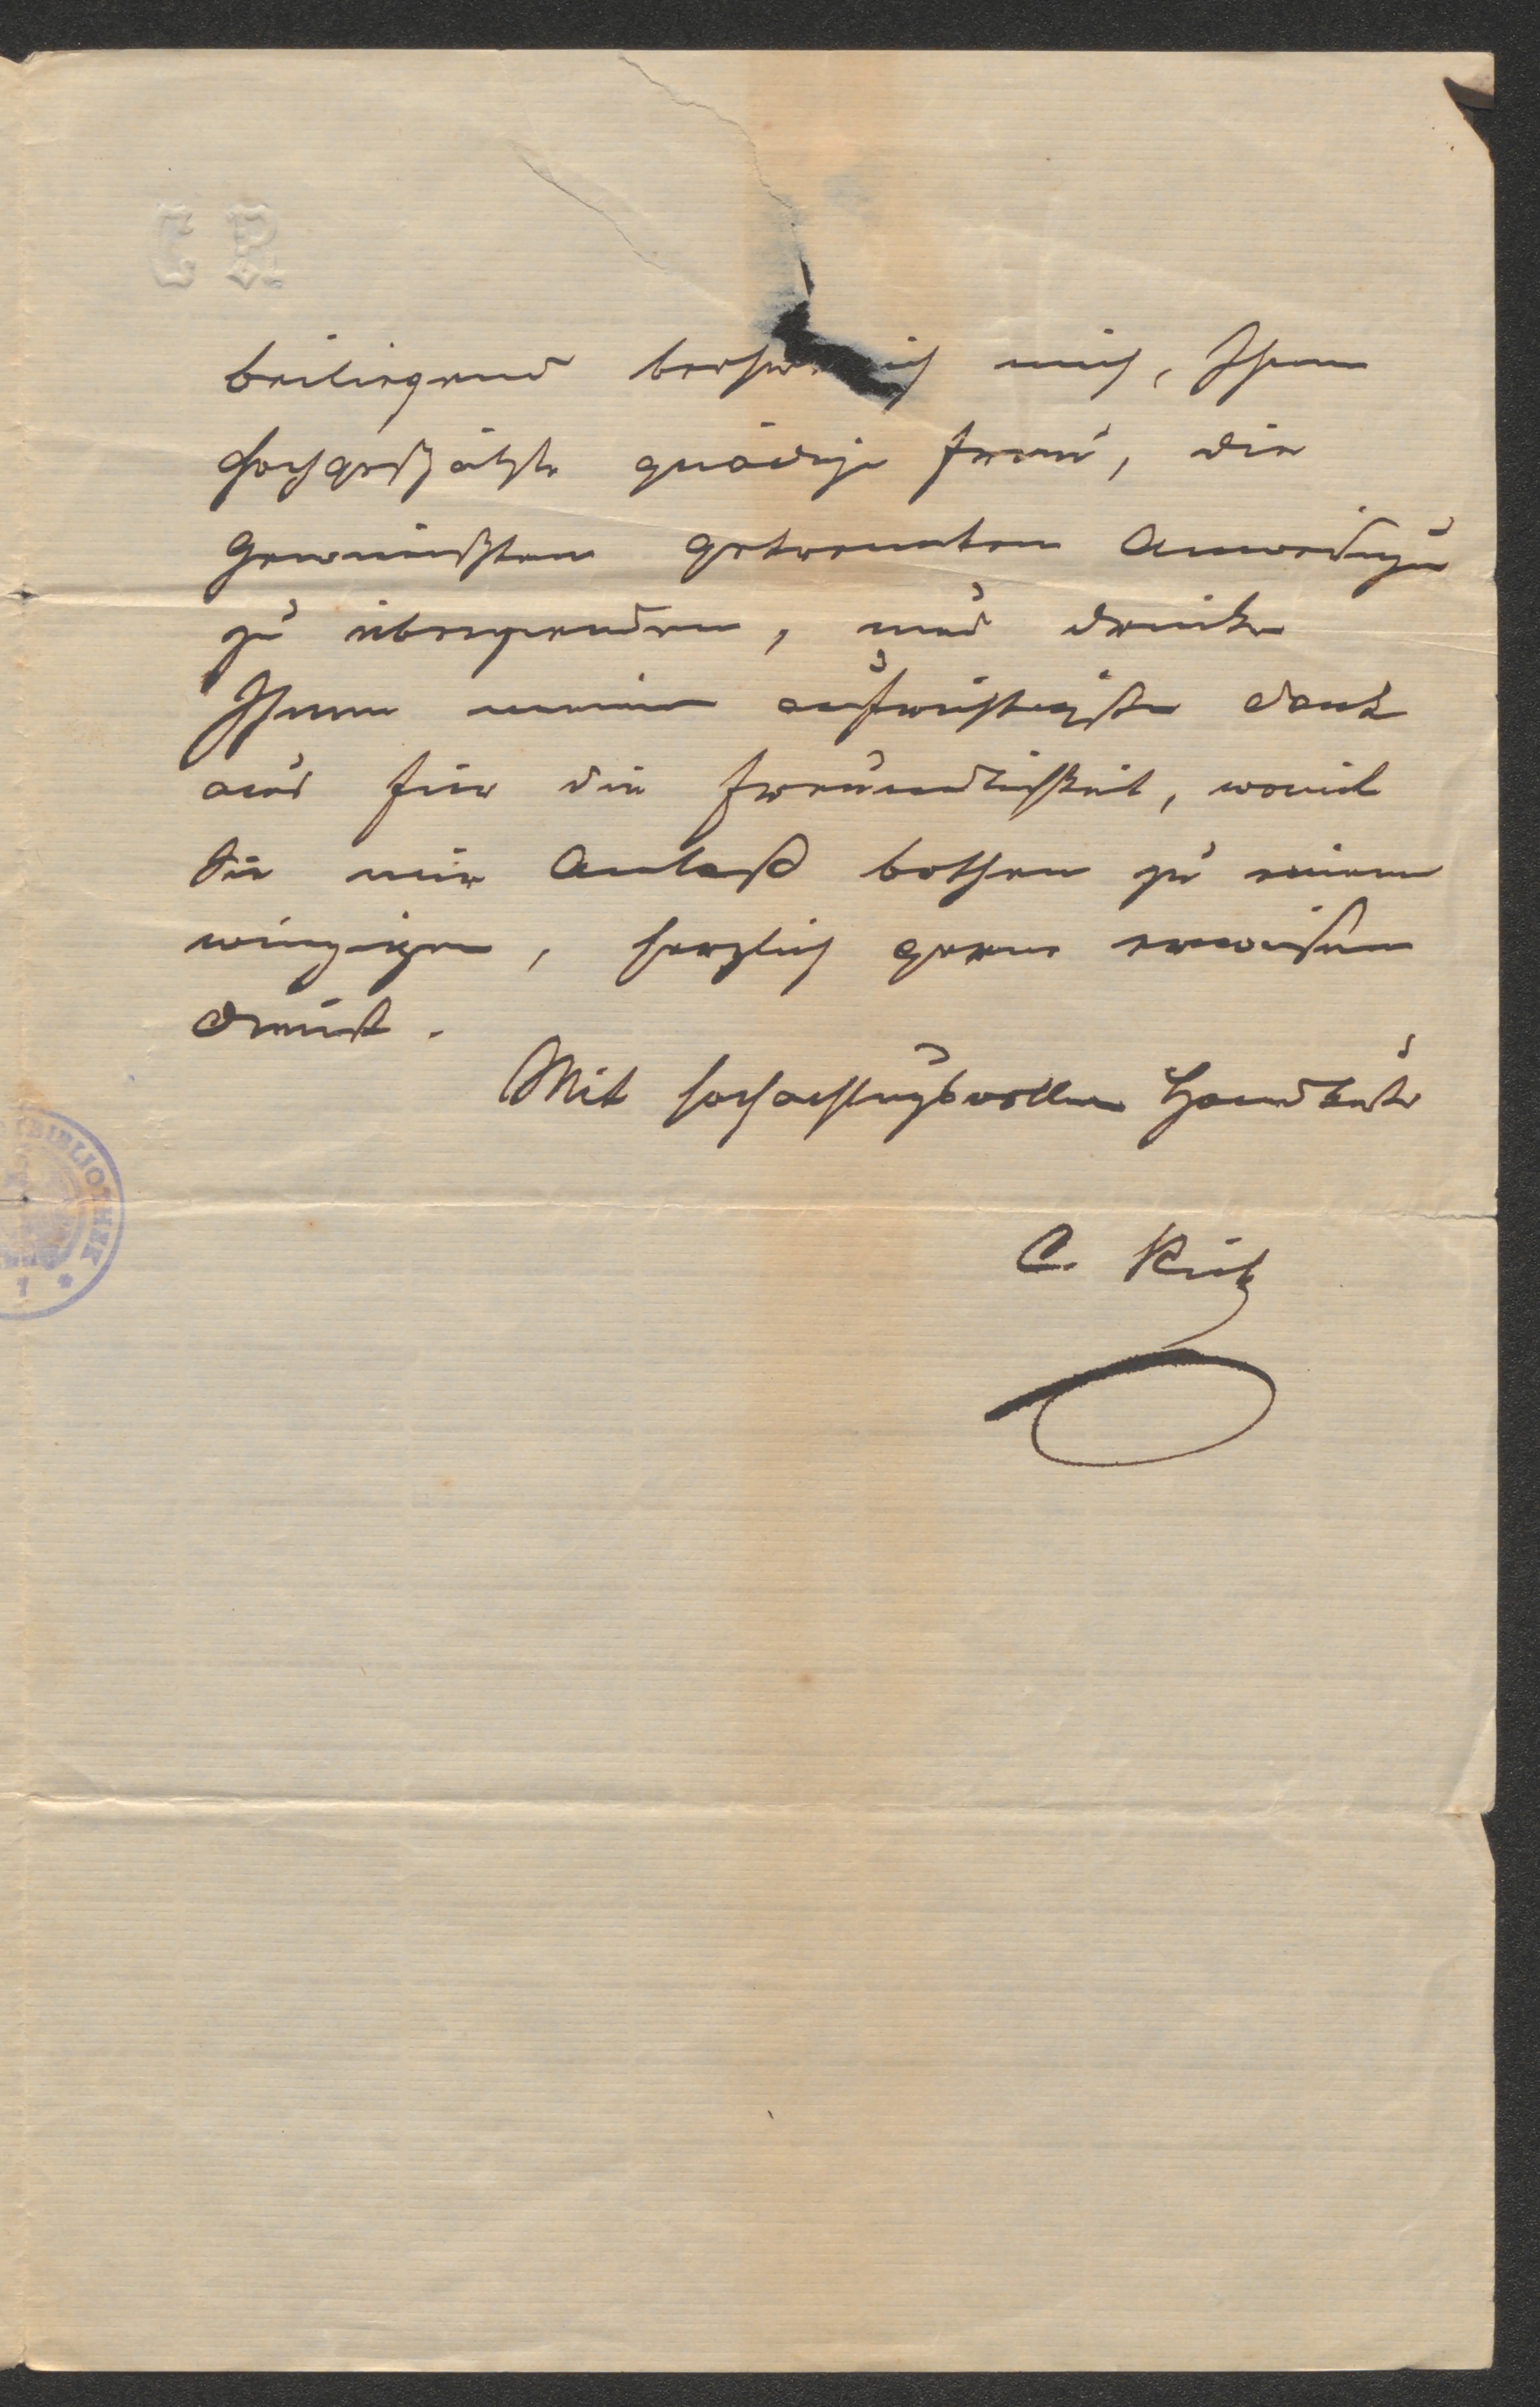 C R
beiliegend beehre ich mich, Ihnen
hochgeschätzte gnädige Frau, die
gewünschten getrennten Anweisungen
zu übersenden, und drücke
Ihnen meinen aufrichtigsten Dank
aus für die Freundlichkeit, womit
Sie mir Anlaß bothen zu einem
winzigen, herzlich gerne erwiesenen
Dienst.
Mit hochachtungsvollem Handkuße
C.
BIBLIOTHEK